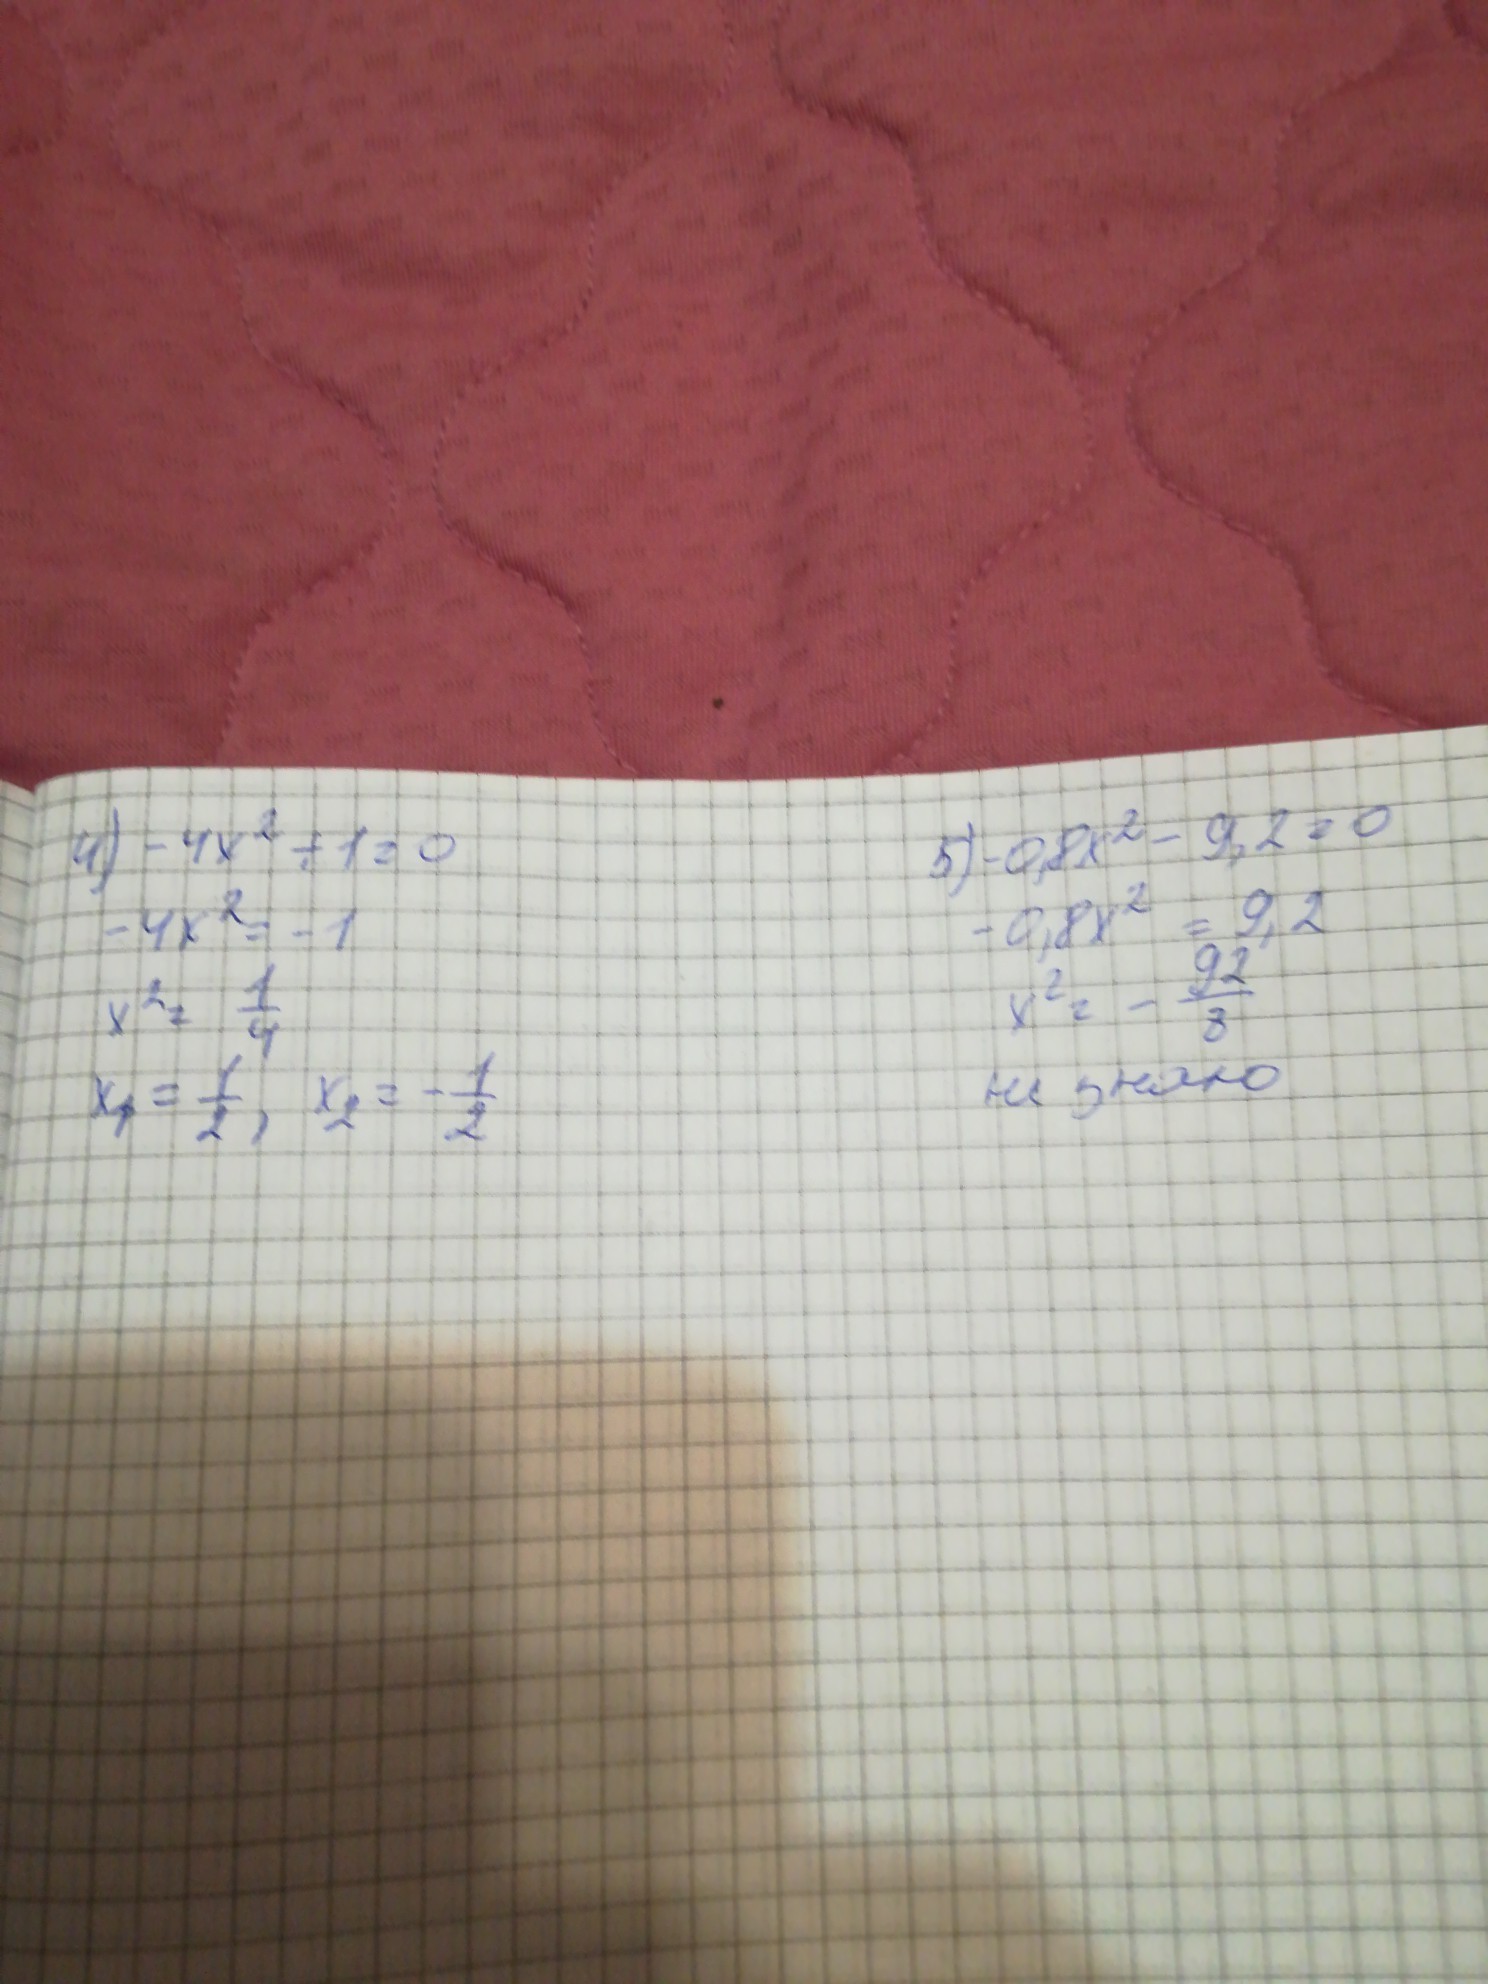 4) -4x² + 1 = 0
-4x² = -1
x² = 1/4
x₁ = 1/2, x₂ = -1/2
5) -0,8x² - 9,2 = 0
-0,8x² = 9,2
x² = - 92/8
не знаю